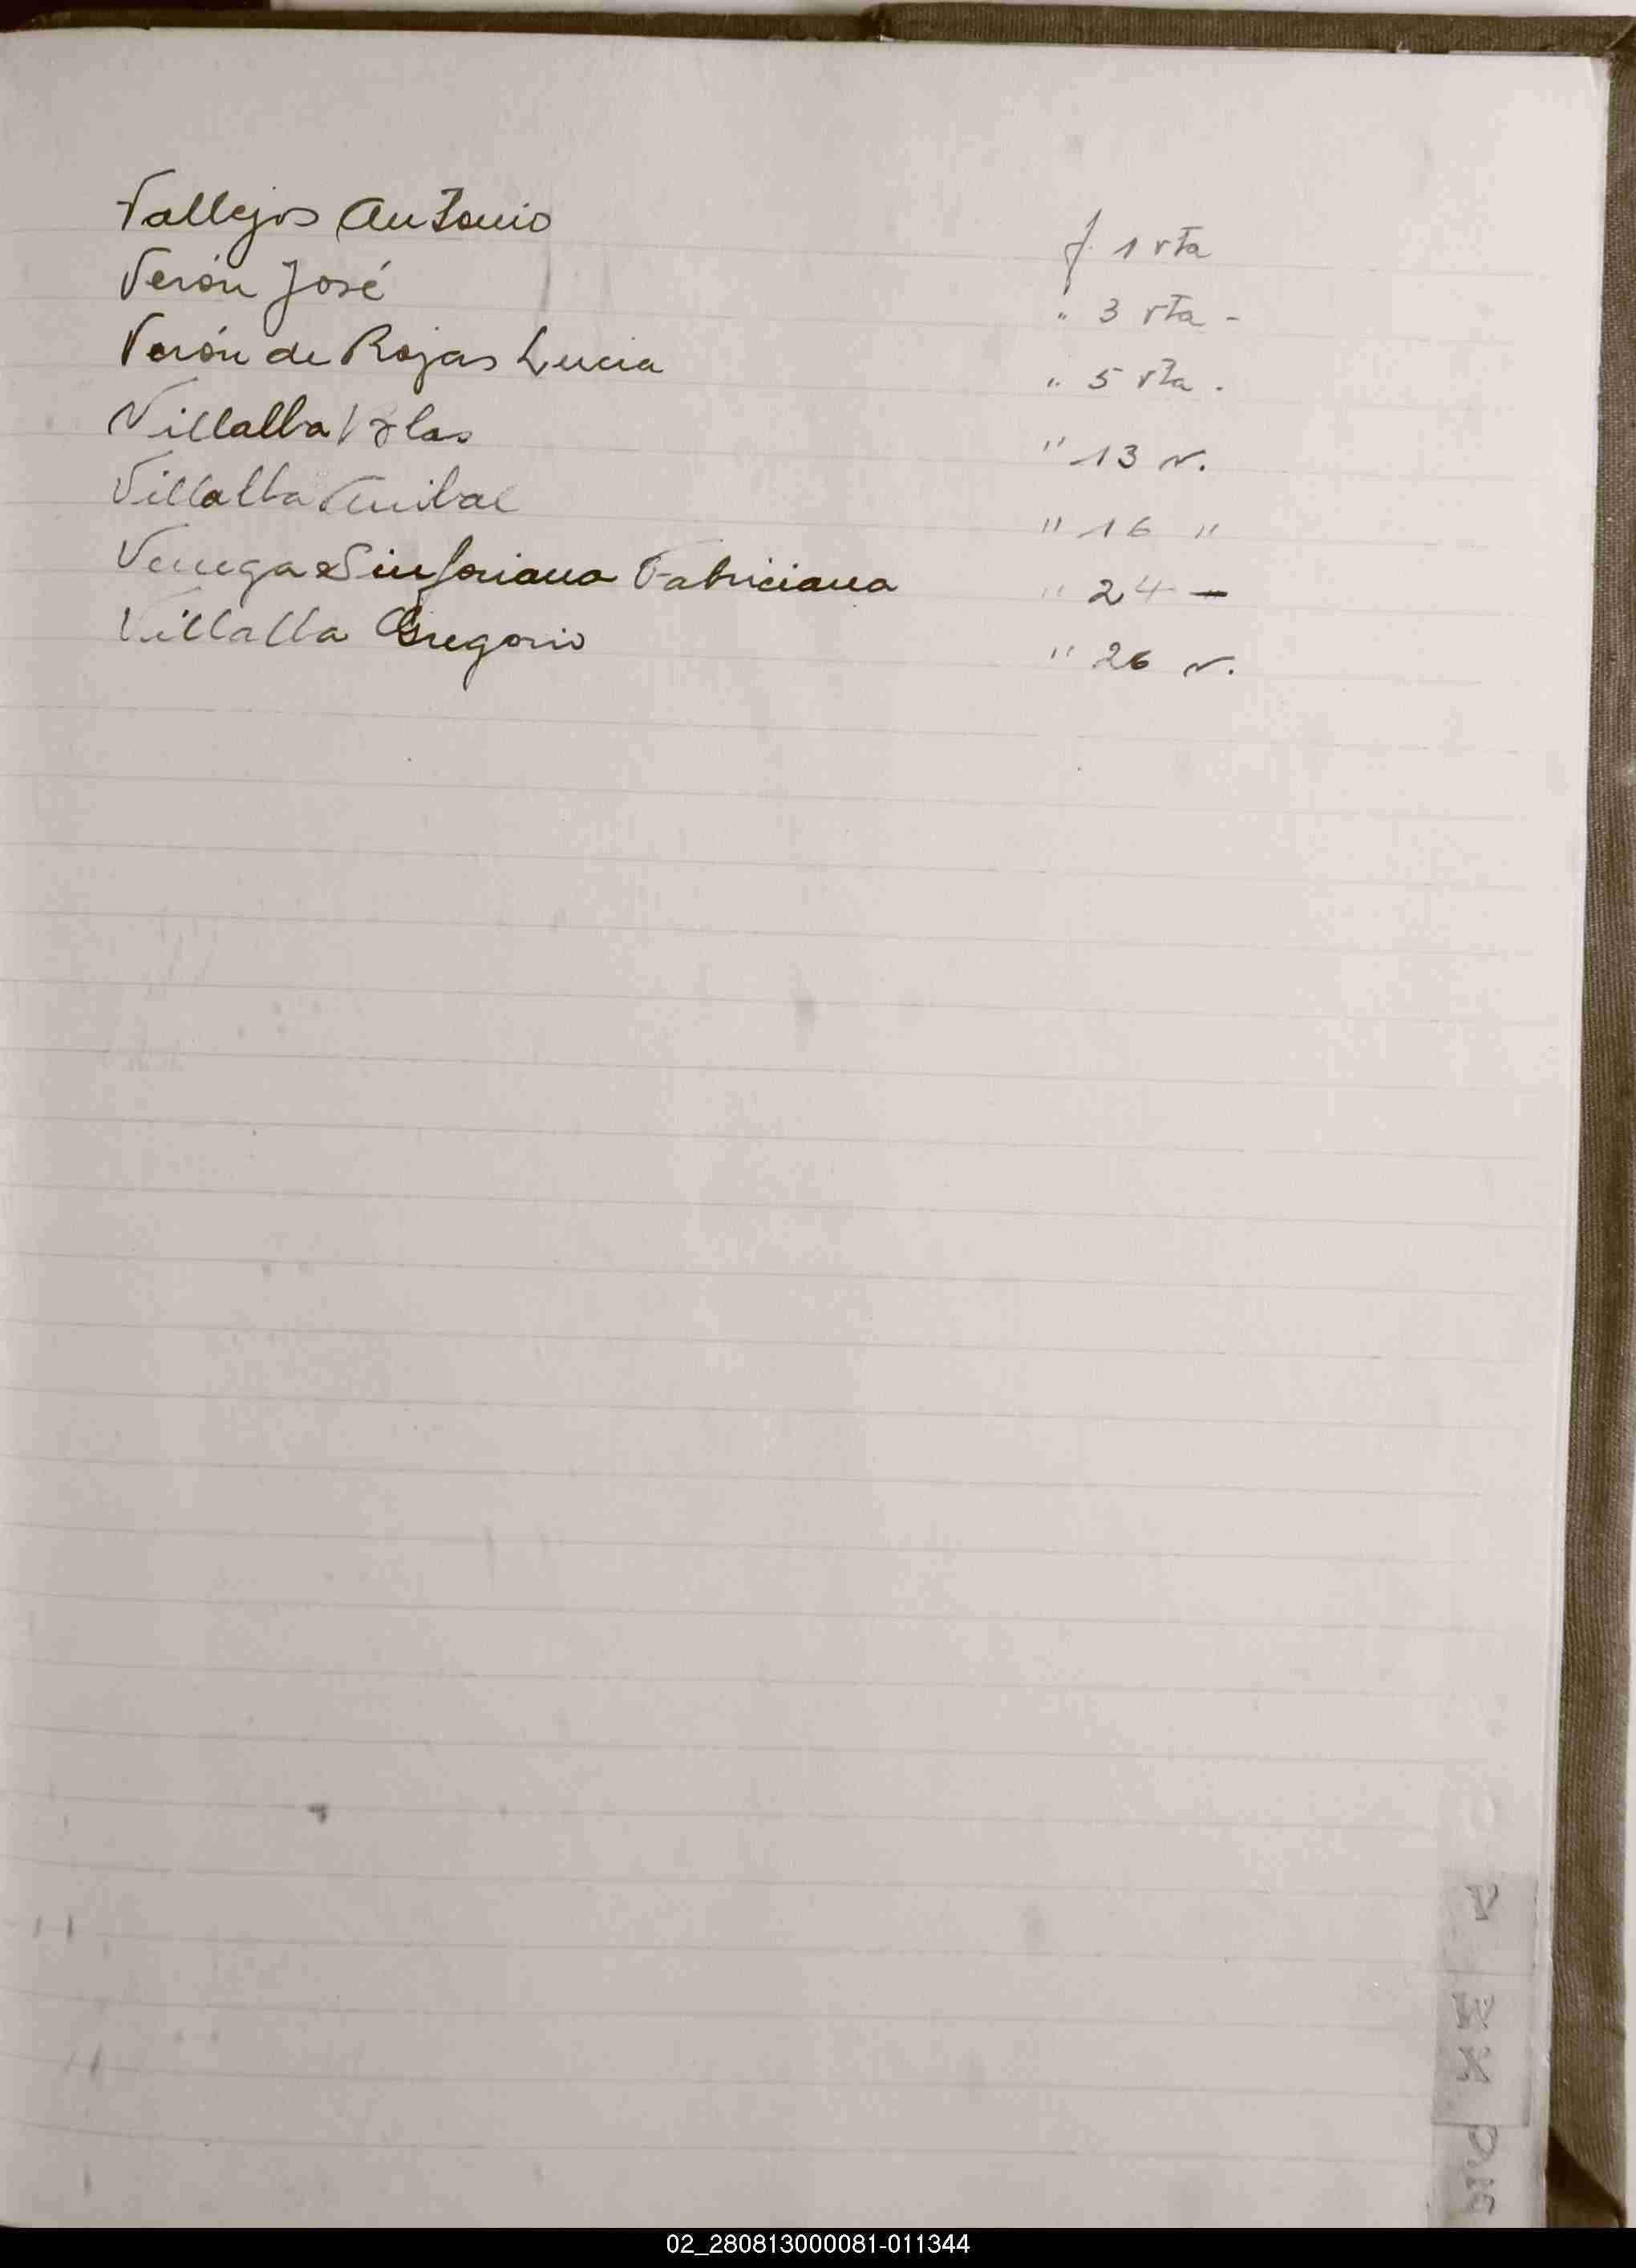 Vallejos Antonio f. 1 vta
Verón José " 3 vta -
Verón de Rojas Lucia " 5 vta .
Villalba Blas " 13 v.
Villalba Anibal " 16 "
Venega Sinforiana Fabriciana " 24 -
Villalba Gregorio " 26 v.
02_280813000081-011344